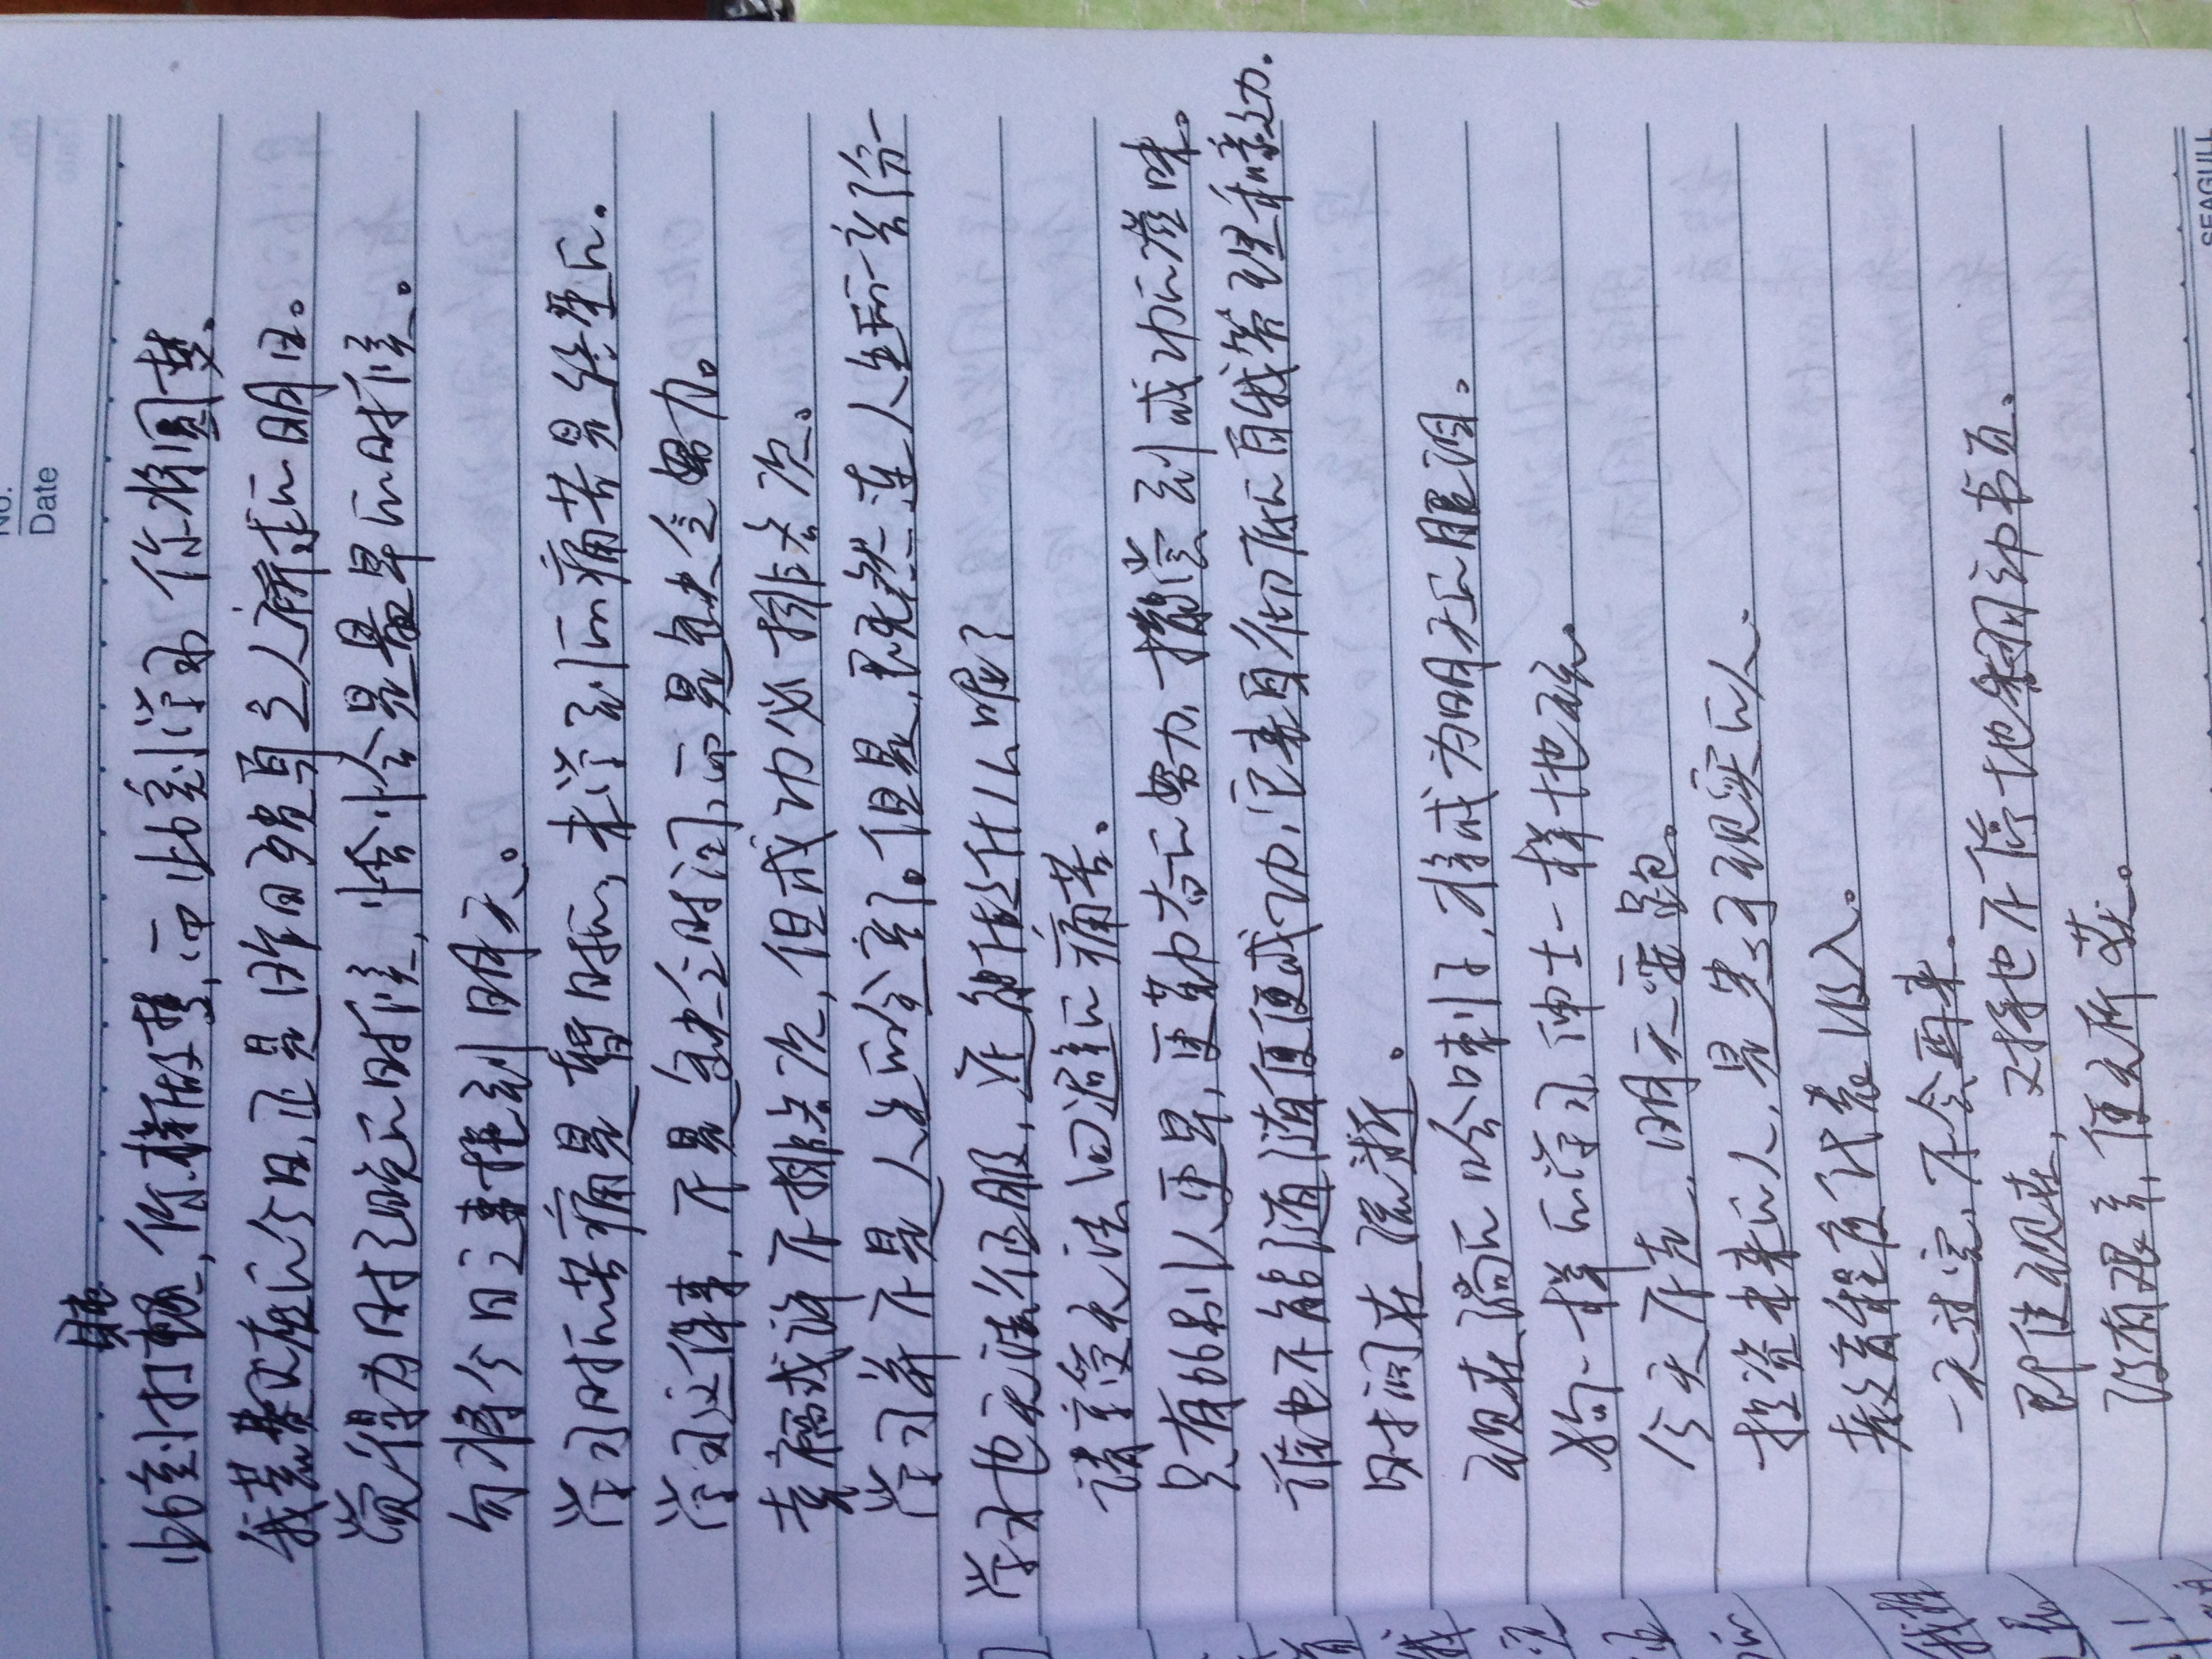 No.
Date
盹
此刻打盹,你将做梦,而此刻学习 你将圆梦。
我荒废的今日,正是昨日殒身之人祈求的明日。
觉得为时已晚的时候,恰恰是最早的时候。
勿将今日之事拖到明天。
学习时的苦痛是暂时的,未学到的痛苦是终生的。
学习这件事,不是缺乏时间,而是缺乏努力。
幸福或许不排名次,但成功必排名次。
学习并不是人生的全部。但是,既然连人生的一部份一
学习也无法征服,还能做什么呢?
请享受无法回避的痛苦。
只有比别人更早,更勤奋的努力,才能尝到成功的滋味。
谁也不能随随便便成功,它来自彻底的自我管理和毅力。
时间在流逝。
现在淌的哈喇子,将成为明天的眼泪。
狗一样的学习,绅士一样地玩。
今天不走,明天要跑。
投资未来的人,是忠于现实的人。
教育程度代表收入。
一天过完,不会再来。
即使现在,对手也不停地翻动书页。
没有艰辛,便无所获。
SEAGULL